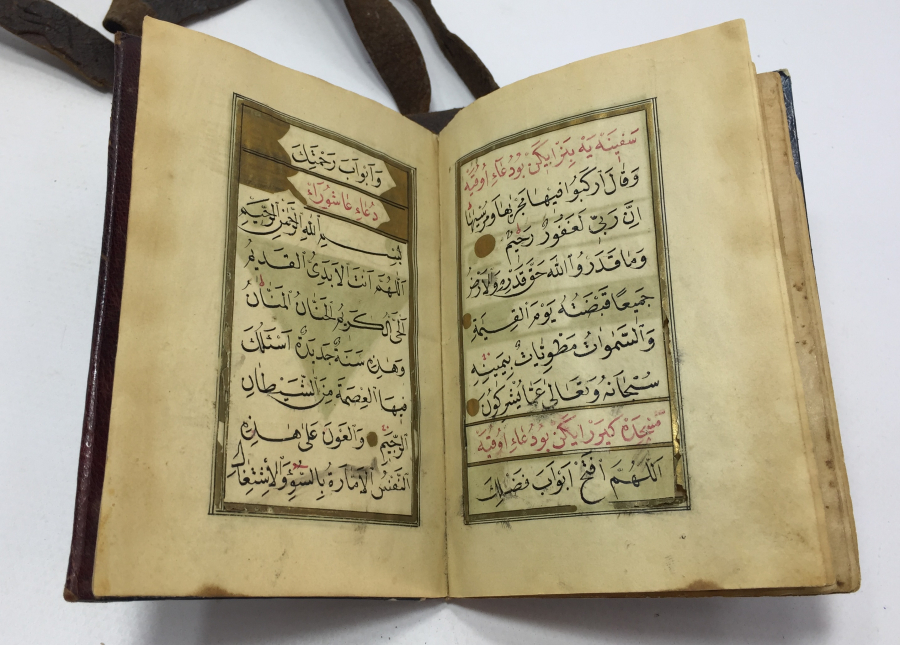 سَفِينَه يَه بِنَرايكَنْ بُو دُعَاءِ اُوقِيَه
وَقَالَ ارْكَبُوا فِيهَا مَجْرٰيهَا وَمُرْسٰيهَا
اِنَّ رَبِّى لَغَفُورٌ رَحِيمٌ
وَمَا قَدَرُوا اللهَ حَقَّ قَدْرِهِ وَالْاَرْضُ
جَمِيعًا قَبْضَتُهُ يَوْمَ الْقِيٰمَةِ
وَالسَّمٰوَاتُ مَطْوِيَّاتٌ بِيَمِينِهِ
سُبْحَانَهُ وَتَعَالٰى عَمَّا يُشْرِكُونَ
مَسْجِدَه كيرَرايكَنْ بُو دُعَاءِ اُوقِيَه
اَللّٰهُمَّ افْتَحْ اَبْوَابَ فَضْلِكَ
وَاَبْوَابَ رَحْمَتِكَ
دُعَاءِ عَاشُورَاءْ
بِسْمِ اللهِ الرَّحْمٰنِ الرَّحِيمِ
اَللّٰهُمَّ اَنْتَ الْاَبَدِىُّ الْقَدِيمُ
اَلْحَىُّ الْكَرِيمُ الْحَنَّانُ الْمَنَّانُ
وَهٰذِهِ سَنَةٌ جَدِيدَةٌ اَسْئَلُكَ
فِيهَا الْعِصْمَةَ مِنَ الشَّيْطَانِ
الرَّجِيمِ وَالْعَوْنَ عَلٰى هٰذِهِ
النَّفْسِ الْاَمَّارَةِ بِالسُّوءِ وَالْاِشْتِغَالَ